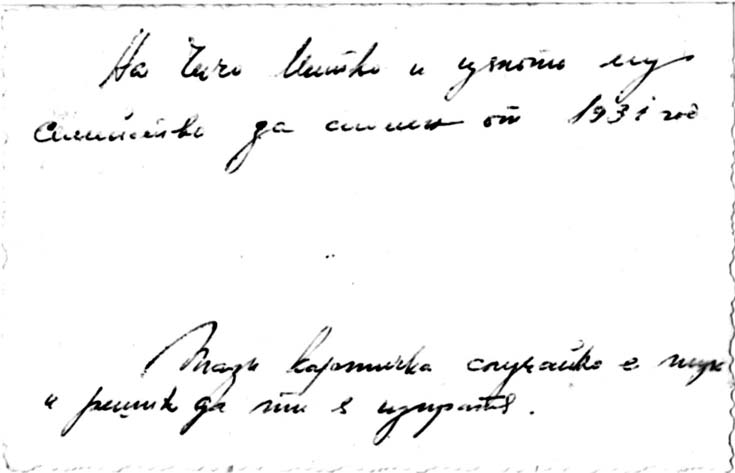 На Чичо Митко и цялото му
семейство за спомен от 1931 год
Тази картичка случайно е тук
и реших да ти я изпратя.